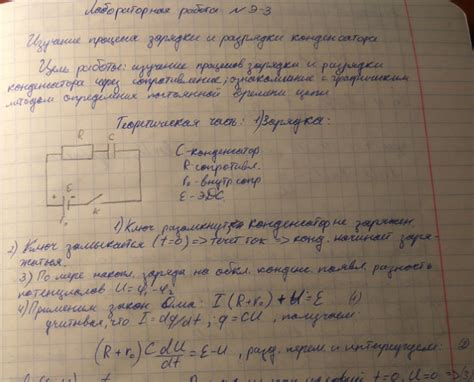 Лабораторная работа № Э-3
Изучение процесса зарядки и разрядки конденсатора
Цель работы: изучение процессов зарядки и разрядки
конденсатора через сопротивление; ознакомление с графическим
методом определения постоянной времени цепи
Теоретическая часть: 1) Зарядка:
R C
C - конденсатор
R - сопротивл.
r₀ - внутр сопр.
E - ЭДС
+ E - K
r₀
1) Ключ разомкнут, конденсатор не заряжен
2) Ключ замыкается (t=0) => течёт ток => конд. начинает заря-
жаться
3) По мере накопл. заряда на обкл. конден. появл. разность
потенциалов U = φ₁ - φ₂
4) Применим закон Ома: I(R+r₀)+U=E (1)
учитывая, что I = dq/dt; q = CU, получаем:
(R+r₀) C dU/dt = E - U, разд. перем и интегрируем: (2)